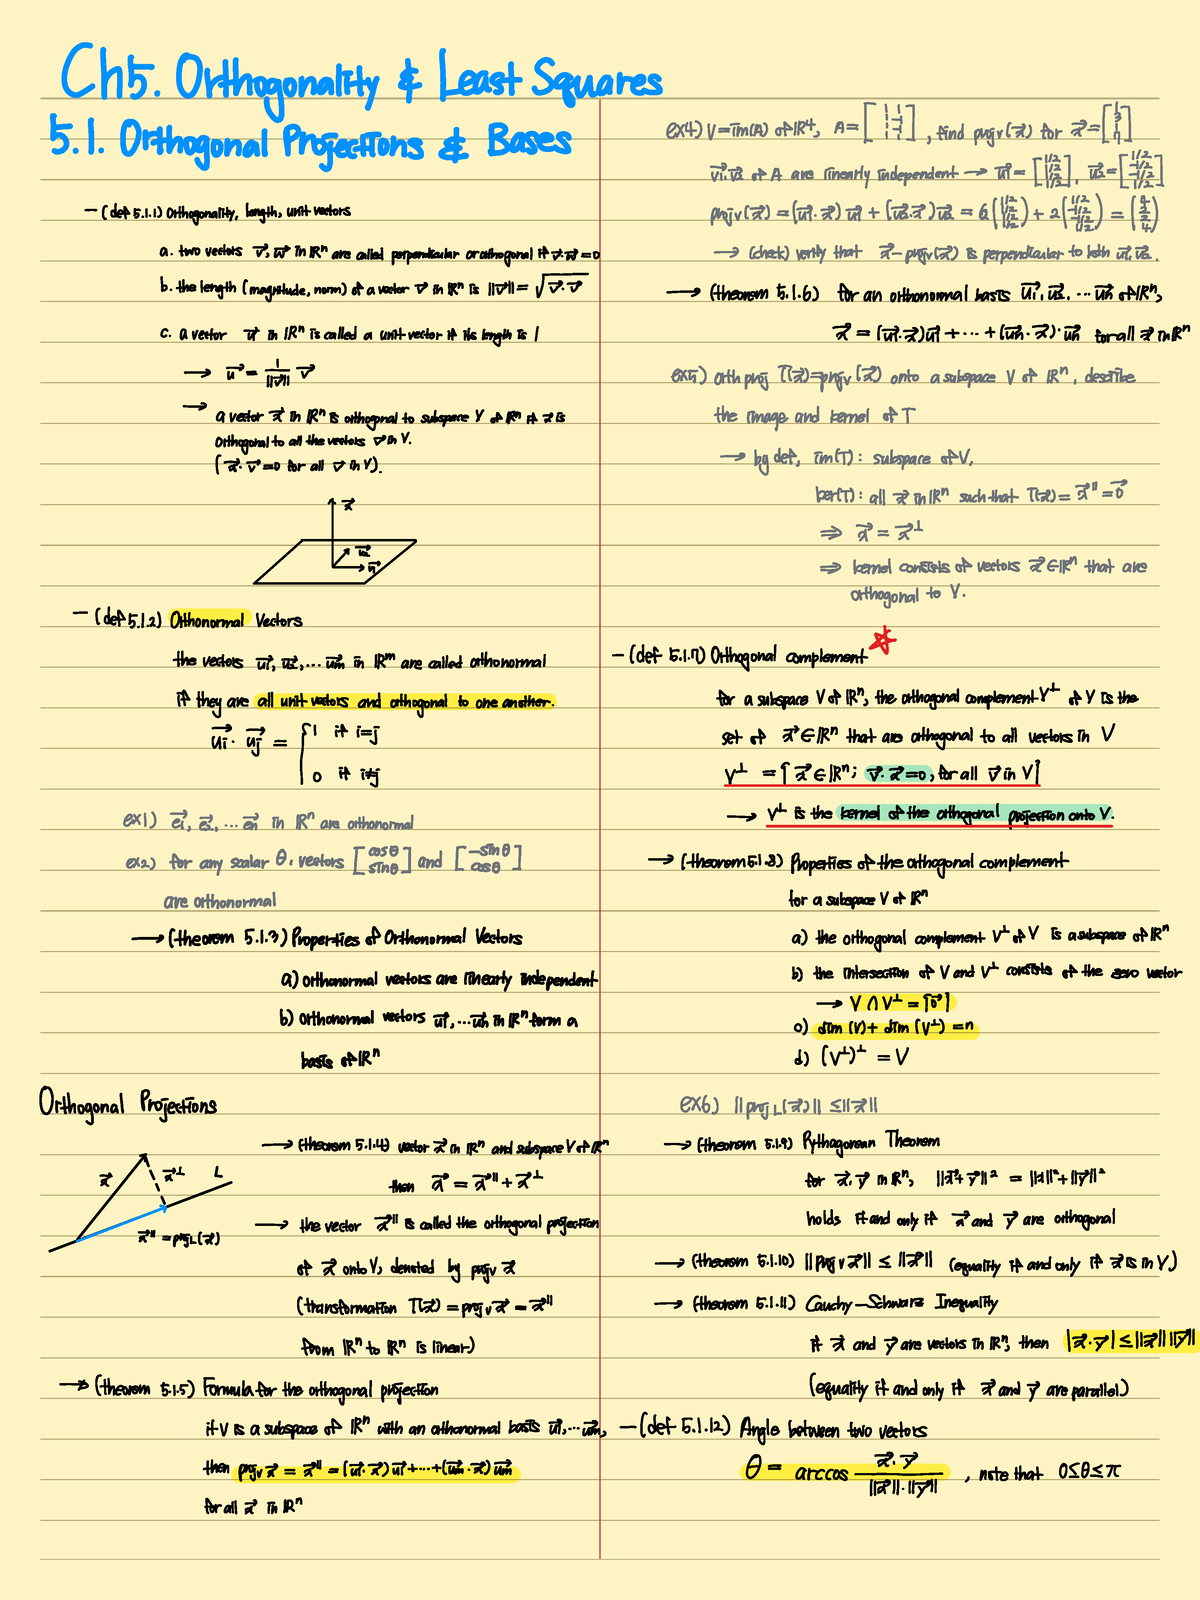 Ch5. Orthogonality & Least Squares
5.1. Orthogonal Projections & Bases
- (def 5.1.1) Orthogonality, length, unit vectors
a. two vectors v⃗, w⃗ in ℝⁿ are called perpendicular or orthogonal if v⃗·w⃗=0
b. the length (magnitude, norm) of a vector v⃗ in ℝⁿ is ||v⃗|| = √(v⃗·v⃗)
c. a vector u⃗ in ℝⁿ is called a unit vector if its length is 1
→ u⃗ = 1/||v⃗|| v⃗
→ a vector x⃗ in ℝⁿ is orthogonal to subspace V of ℝⁿ if x⃗ is
orthogonal to all the vectors v⃗ in V.
(x⃗·v⃗=0 for all v⃗ in V).
x⃗
u⃗2
u⃗1
- (def 5.1.2) Orthonormal Vectors
the vectors u⃗1, u⃗2, ... u⃗m in ℝᵐ are called orthonormal
if they are all unit vectors and orthogonal to one another.
u⃗i · u⃗j = { 1 if i=j
0 if i≠j
ex1) e⃗1, e⃗2, ... e⃗n in ℝⁿ are orthonormal
ex2) for any scalar θ, vectors [cosθ sinθ] and [-sinθ cosθ]
are orthonormal
→ (theorem 5.1.3) Properties of Orthonormal Vectors
a) orthonormal vectors are linearly independent
b) orthonormal vectors u⃗1, ... u⃗n in ℝⁿ form a
basis of ℝⁿ
Orthogonal Projections
x⃗ x⃗⊥ L
x⃗∥ = projL(x⃗)
→ (theorem 5.1.4) vector x⃗ in ℝⁿ and subspace V of ℝⁿ
then x⃗ = x⃗∥ + x⃗⊥
→ the vector x⃗∥ is called the orthogonal projection
of x⃗ onto V, denoted by projv x⃗
(transformation T(x⃗) = projv x⃗ = x⃗∥
from ℝⁿ to ℝⁿ is linear)
→ (theorem 5.1.5) Formula for the orthogonal projection
if V is a subspace of ℝⁿ with an orthonormal basis u⃗1, ... u⃗m,
then projv x⃗ = x⃗∥ = (u⃗1·x⃗)u⃗1 + ... + (u⃗m·x⃗)u⃗m
for all x⃗ in ℝⁿ
ex4) V = im(A) of ℝ⁴, A = [1 1; 1 -1; 1 -1; 1 1], find projv(x⃗) for x⃗ = [1 3 1 7]
v⃗1, v⃗2 of A are linearly independent → u⃗1 = [1/2 1/2 1/2 1/2], u⃗2 = [1/2 -1/2 -1/2 1/2]
projv(x⃗) = (u⃗1·x⃗)u⃗1 + (u⃗2·x⃗)u⃗2 = 6(1/2 1/2 1/2 1/2) + 2(1/2 -1/2 -1/2 1/2) = (4 2 2 4)
→ (check) verify that x⃗-projv(x⃗) is perpendicular to both u⃗1, u⃗2.
→ (theorem 5.1.6) for an orthonormal basis u⃗1, u⃗2, ... u⃗n of ℝⁿ,
x⃗ = (u⃗1·x⃗)u⃗1 + ... + (u⃗n·x⃗)·u⃗n for all x⃗ in ℝⁿ
ex5) orth proj T(x⃗)=projv(x⃗) onto a subspace V of ℝⁿ, describe
the image and kernel of T
→ by def, im(T): subspace of V,
ker(T): all x⃗ in ℝⁿ such that T(x⃗) = x⃗∥ = 0⃗
⇒ x⃗ = x⃗⊥
⇒ kernel consists of vectors x⃗ ∈ ℝⁿ that are
orthogonal to V.
- (def 5.1.7) Orthogonal complement ☆
for a subspace V of ℝⁿ, the orthogonal complement V⊥ of V is the
set of x⃗ ∈ ℝⁿ that are orthogonal to all vectors in V
V⊥ = {x⃗ ∈ ℝⁿ; v⃗·x⃗=0, for all v⃗ in V}
→ V⊥ is the kernel of the orthogonal projection onto V.
→ (theorem 5.1.8) Properties of the orthogonal complement
for a subspace V of ℝⁿ
a) the orthogonal complement V⊥ of V is a subspace of ℝⁿ
b) the intersection of V and V⊥ consists of the zero vector
→ V ∩ V⊥ = {0⃗}
c) dim(V) + dim(V⊥) = n
d) (V⊥)⊥ = V
ex6) ||projL(x⃗)|| ≤ ||x⃗||
→ (theorem 5.1.9) Pythagorean Theorem
for x⃗, y⃗ in ℝⁿ, ||x⃗+y⃗||² = ||x||² + ||y⃗||²
holds if and only if x⃗ and y⃗ are orthogonal
→ (theorem 5.1.10) ||projv x⃗|| ≤ ||x⃗|| (equality if and only if x⃗ is in V)
→ (theorem 5.1.11) Cauchy-Schwarz Inequality
if x⃗ and y⃗ are vectors in ℝⁿ, then |x⃗·y⃗| ≤ ||x⃗|| ||y⃗||
(equality if and only if x⃗ and y⃗ are parallel)
- (def 5.1.12) Angle between two vectors
θ = arccos x⃗·y⃗ / ||x⃗||·||y⃗|| , note that 0≤θ≤π